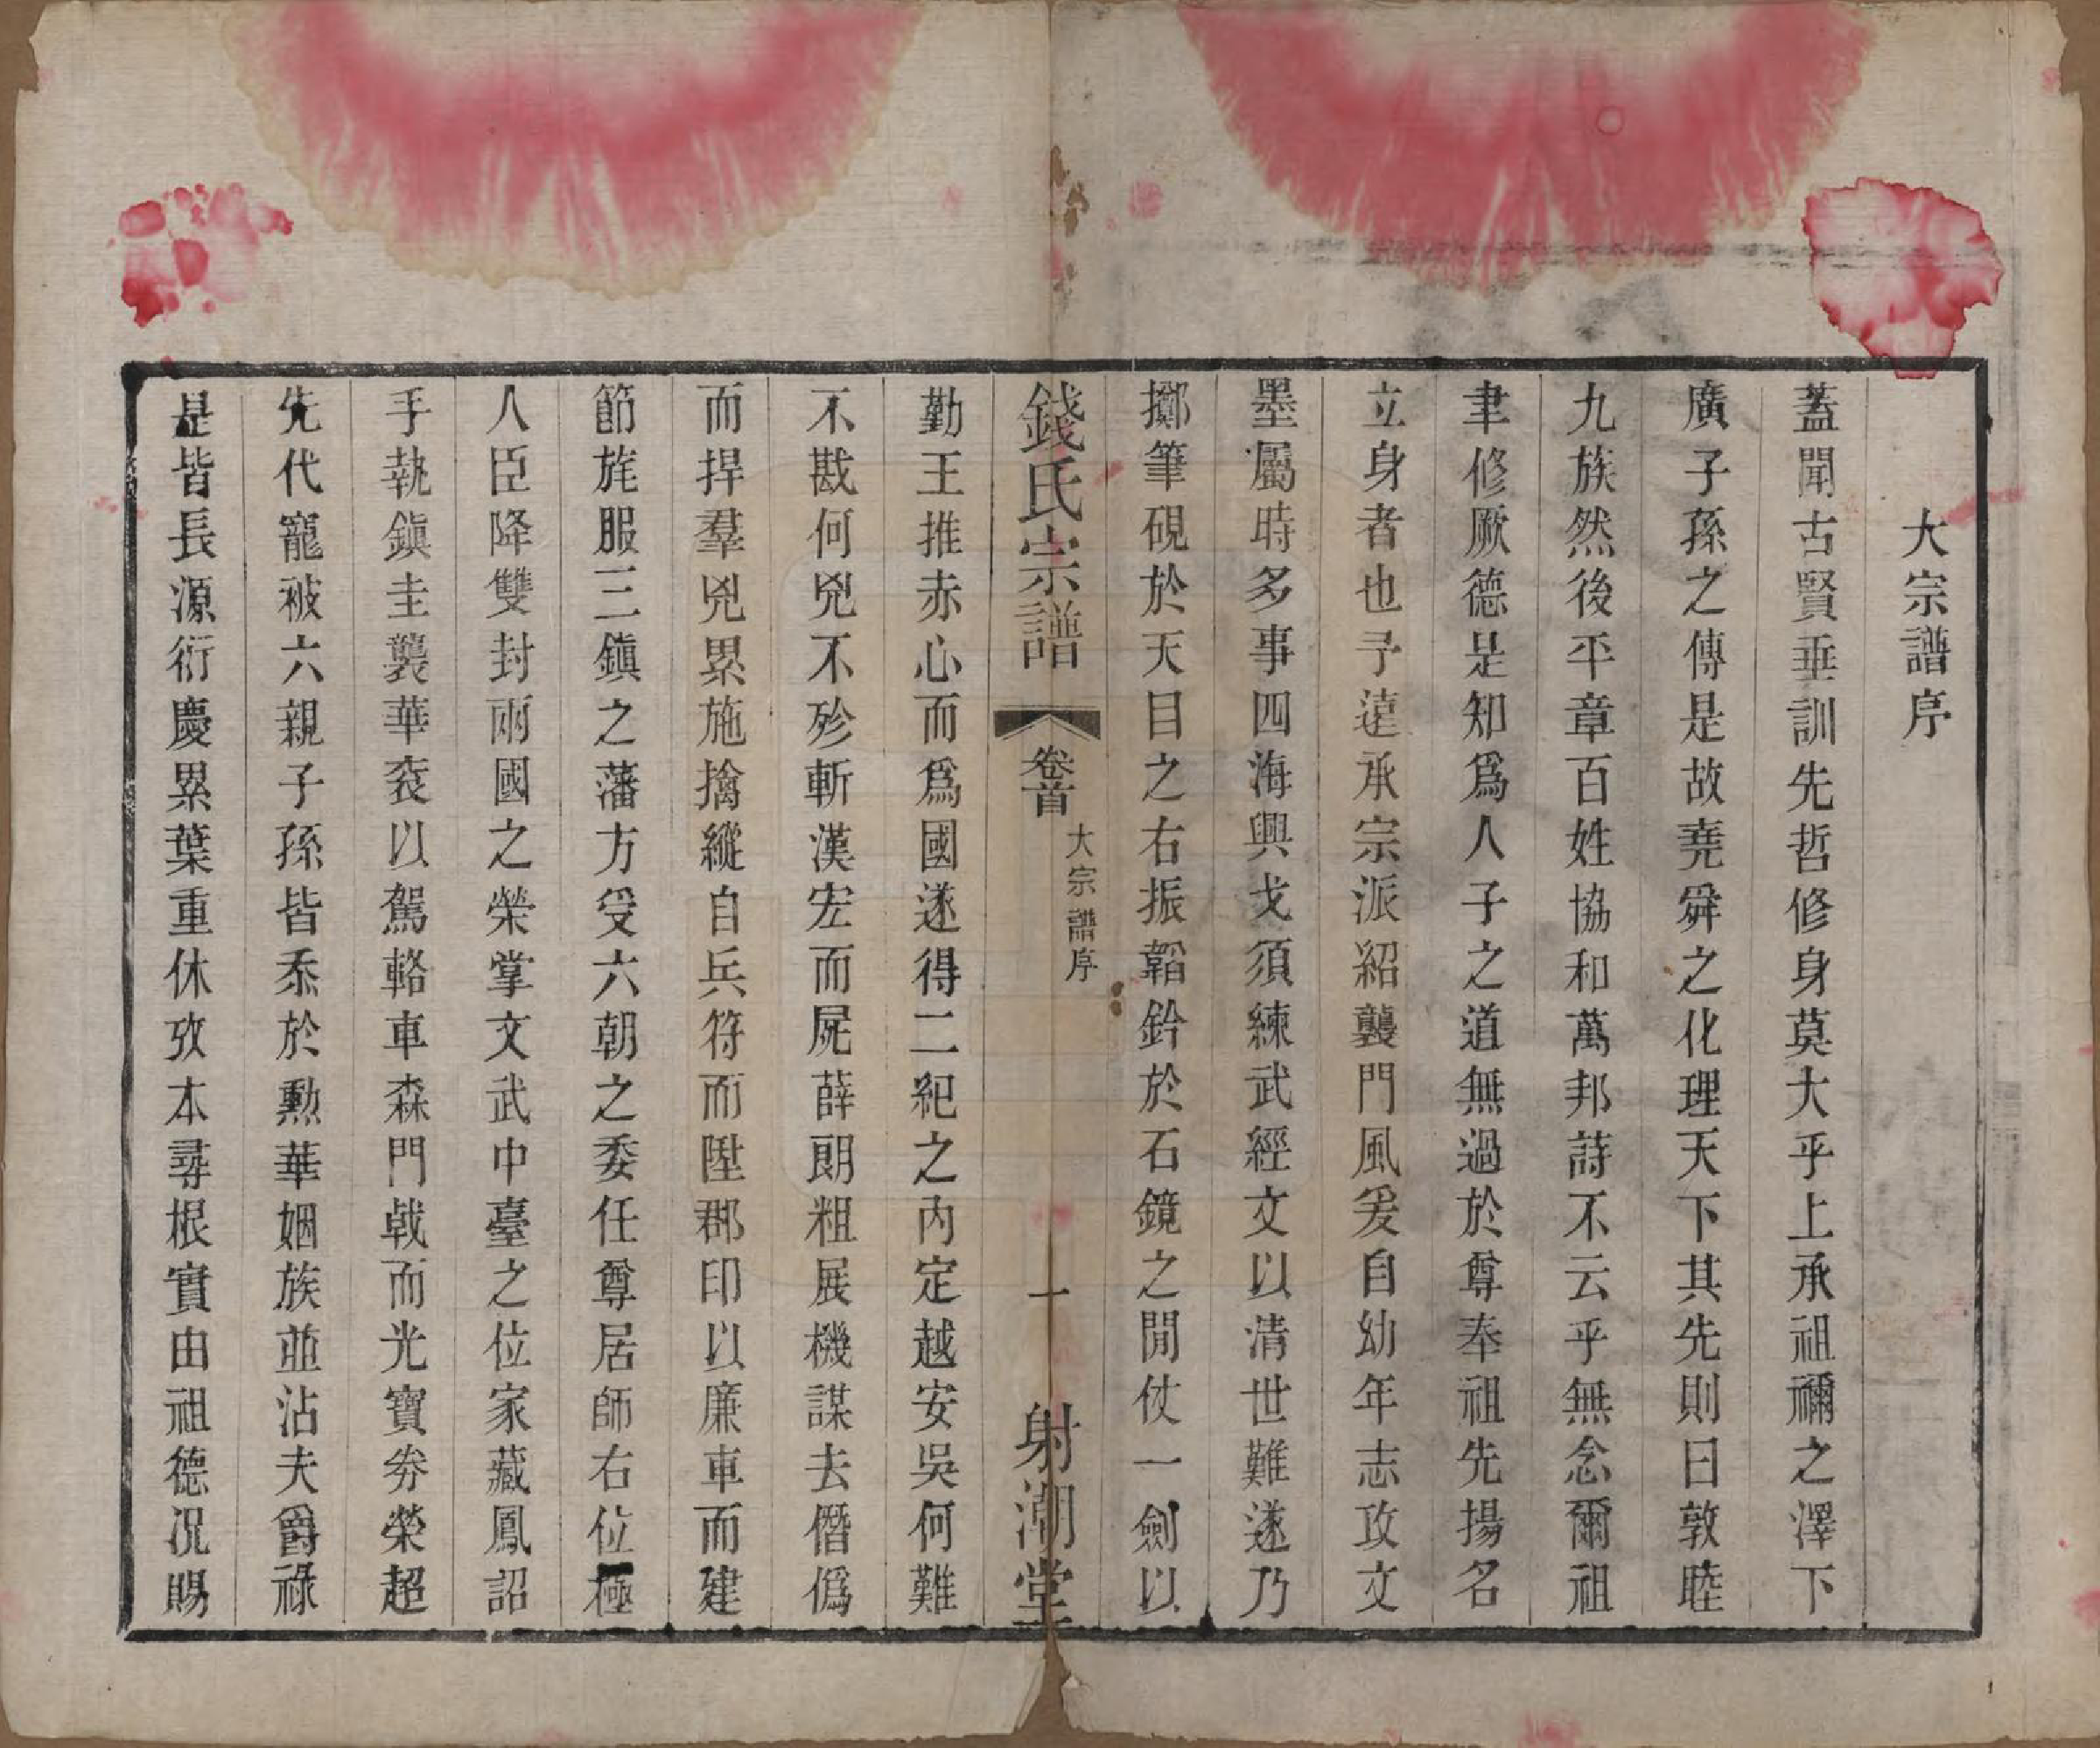 大宗譜序
蓋聞古賢垂訓先哲修身莫大乎上承祖禰之澤下
廣子孫之傳是故堯舜之化理天下其先則曰敦睦
九族然後平章百姓協和萬邦詩不云乎無念爾祖
聿修厥德是知爲人子之道無過於尊奉祖先揚名
立身者也予遠承宗派紹襲門風爰自幼年志攻文
墨屬時多事四海興戈須練武經文以清世難遂乃
擲筆硯於天目之右振韜鈐於石鏡之閒仗一劍以
錢氏宗譜 卷首 大宗譜序 一 射潮堂
勤王推赤心而爲國遂得二紀之內定越安吳何難
不戡何兇不殄斬漢宏而屍薛朗粗展機謀去僭僞
而捍羣兇累施擒縱自兵符而陞郡印以廉車而建
節旄服三鎭之藩方受六朝之委任尊居師右位極
人臣降雙封兩國之榮掌文武中臺之位家藏鳳詔
手執鎭圭襲華袞以駕輅車森門戟而光寶劵榮超
先代寵被六親子孫皆忝於勳華姻族並沾夫爵祿
是皆長源衍慶累葉重休攷本尋根實由祖德況賜